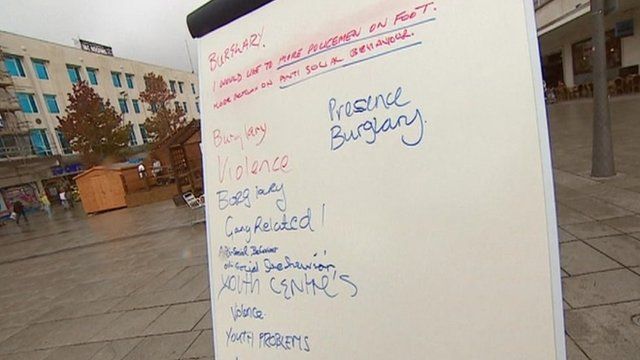 BURGLARY.
I WOULD LIKE TO MORE POLICEMEN ON FOOT.
ON ANTI SOCIAL BEHAVIOUR.
Burglary
Violence
Burglary
Gang Related!
Anti-Social Behaviour
YOUTH CENTRE'S
Violence
YOUTH PROBLEMS
Presence
Burglary.